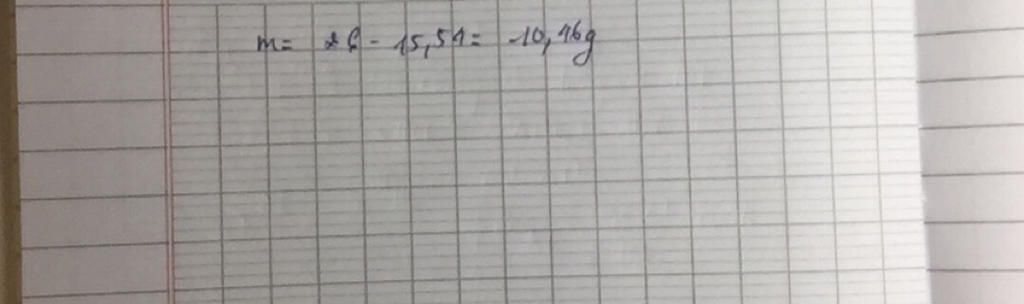 m= 26 - 15,54= 10,46g